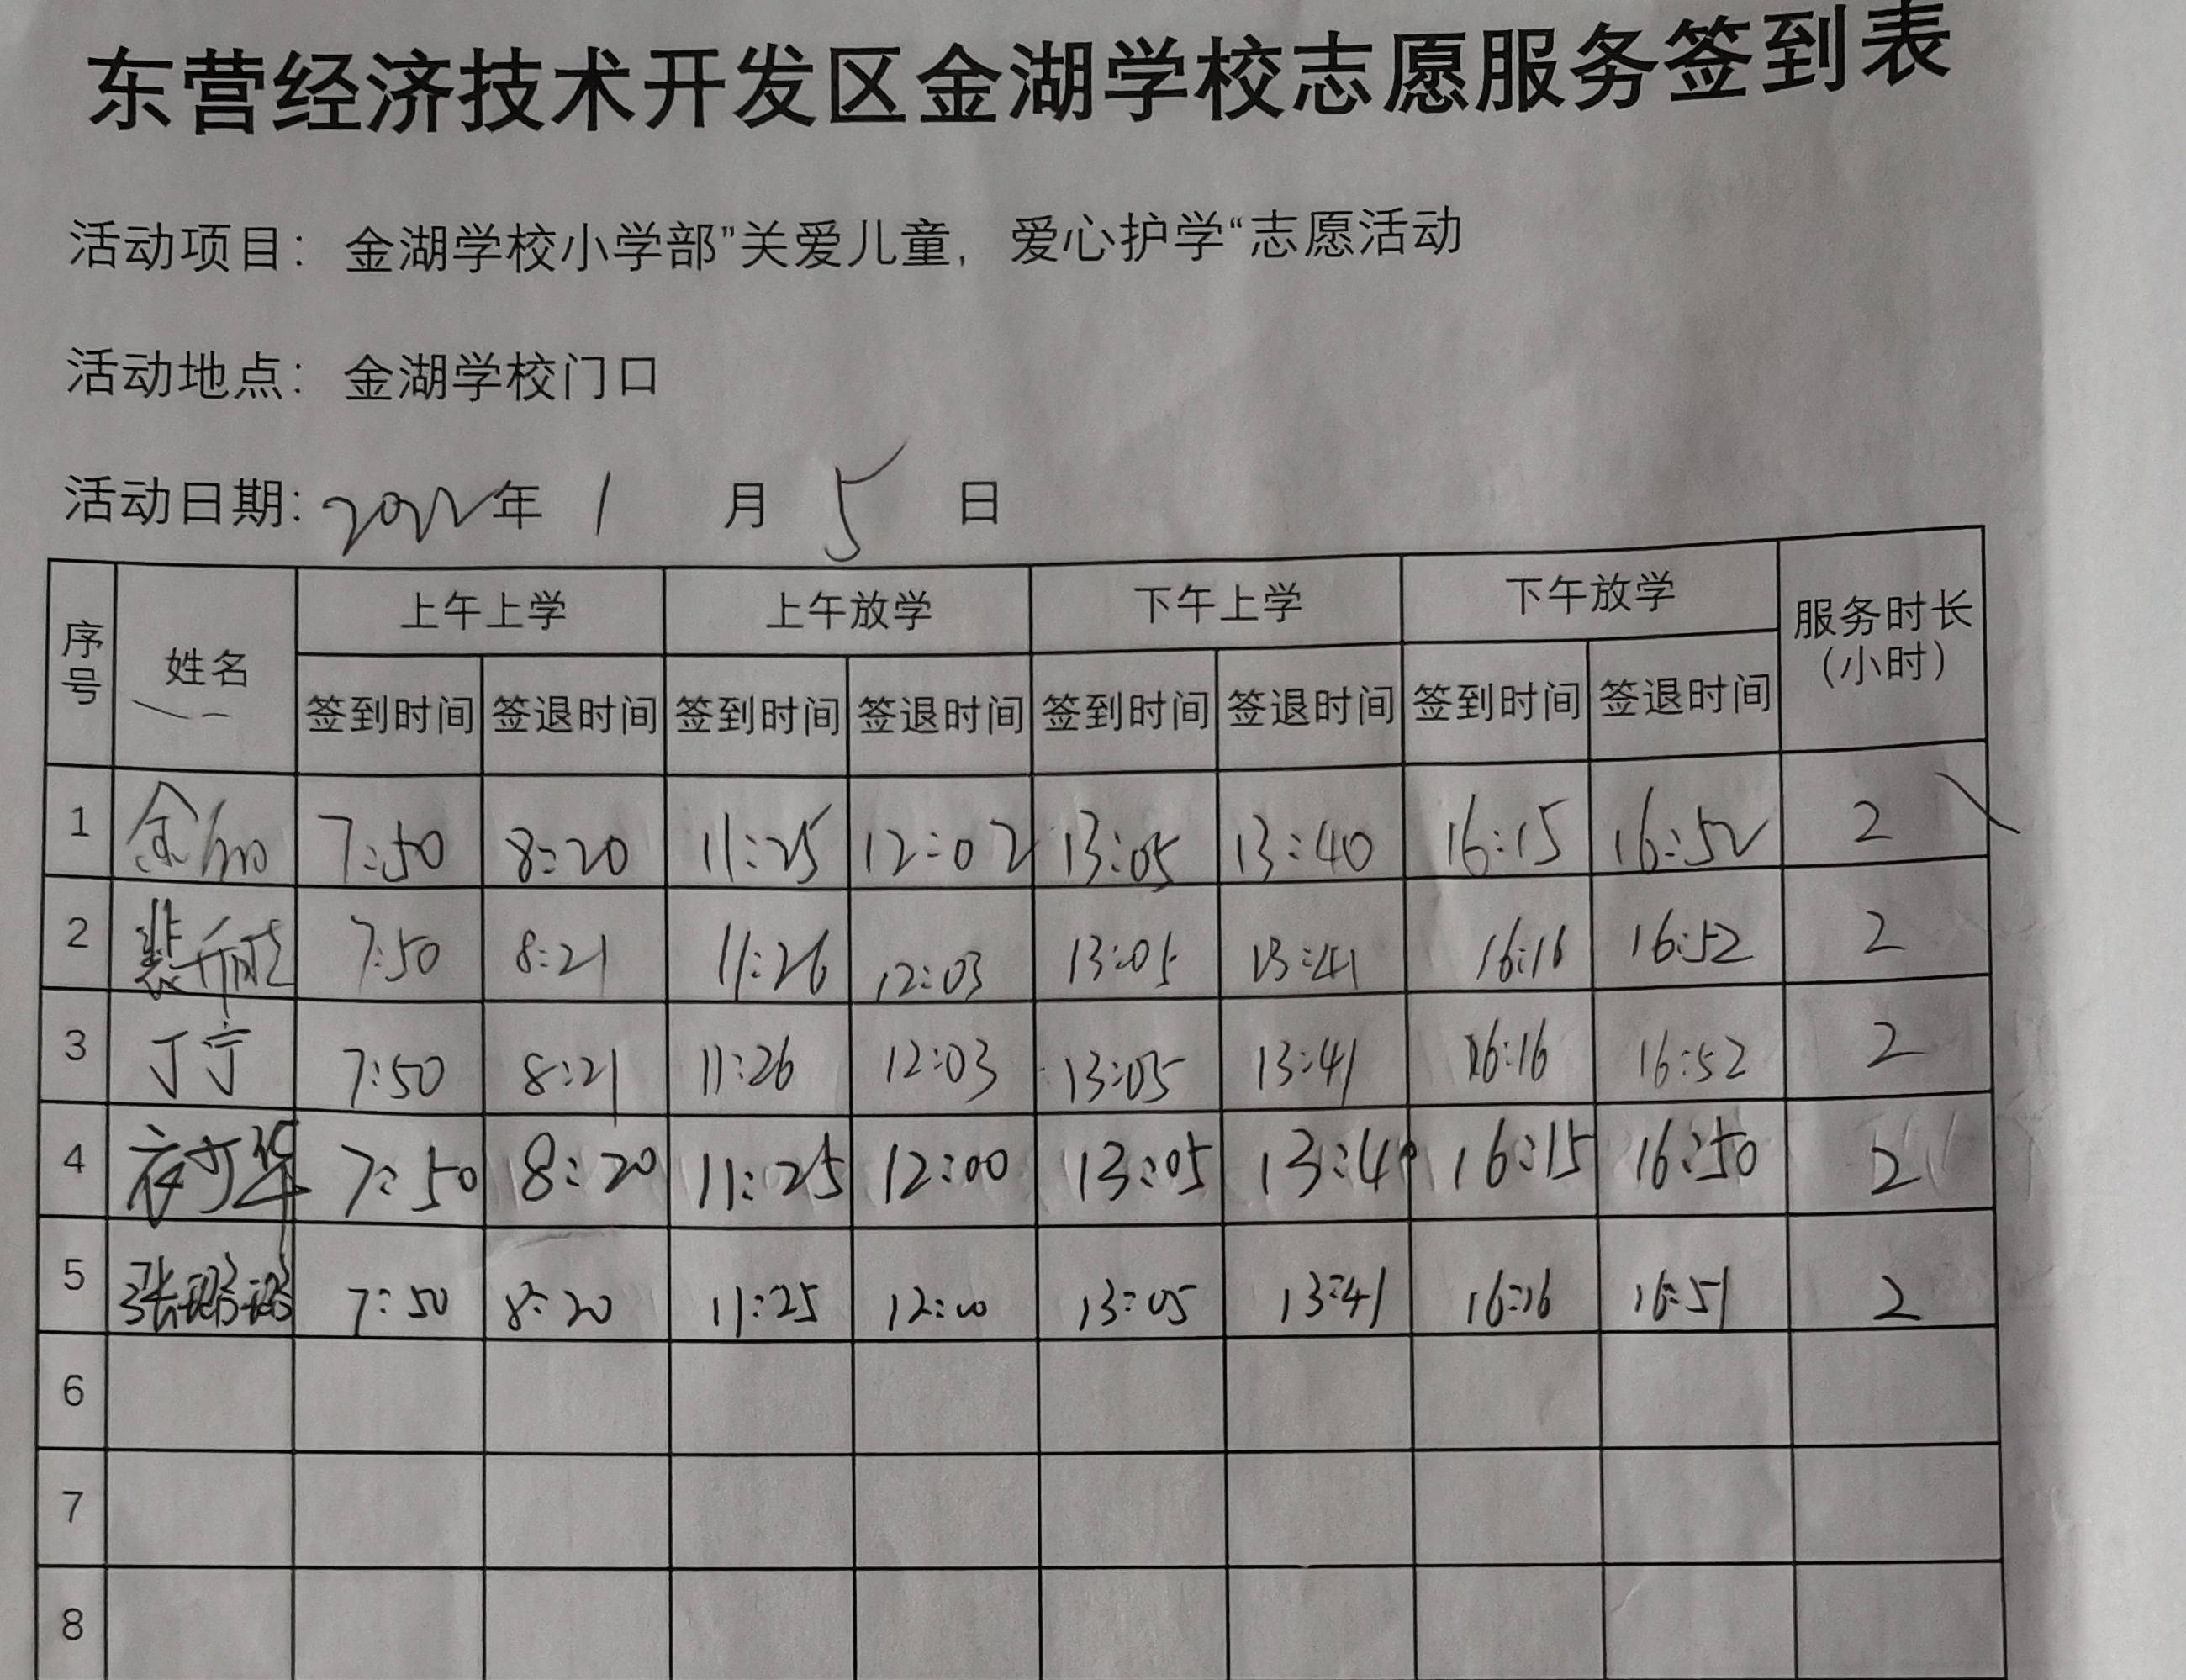 东营经济技术开发区金湖学校志愿服务签到表
活动项目：金湖学校小学部”关爱儿童，爱心护学“志愿活动
活动地点：金湖学校门口
活动日期：2022年 1 月 5 日
序号 姓名 上午上学 上午放学 下午上学 下午放学 服务时长（小时）
签到时间 签退时间 签到时间 签退时间 签到时间 签退时间 签到时间 签退时间
1 7:50 8:20 11:25 12:02 13:05 13:40 16:15 16:52 2
2 7:50 8:21 11:26 12:03 13:05 13:41 16:16 16:52 2
3 丁宁 7:50 8:21 11:26 12:03 13:05 13:41 16:16 16:52 2
4 7:50 8:20 11:25 12:00 13:05 13:40 16:15 16:50 2
5 张璐璐 7:50 8:20 11:25 12:00 13:05 13:41 16:16 16:51 2
6
7
8